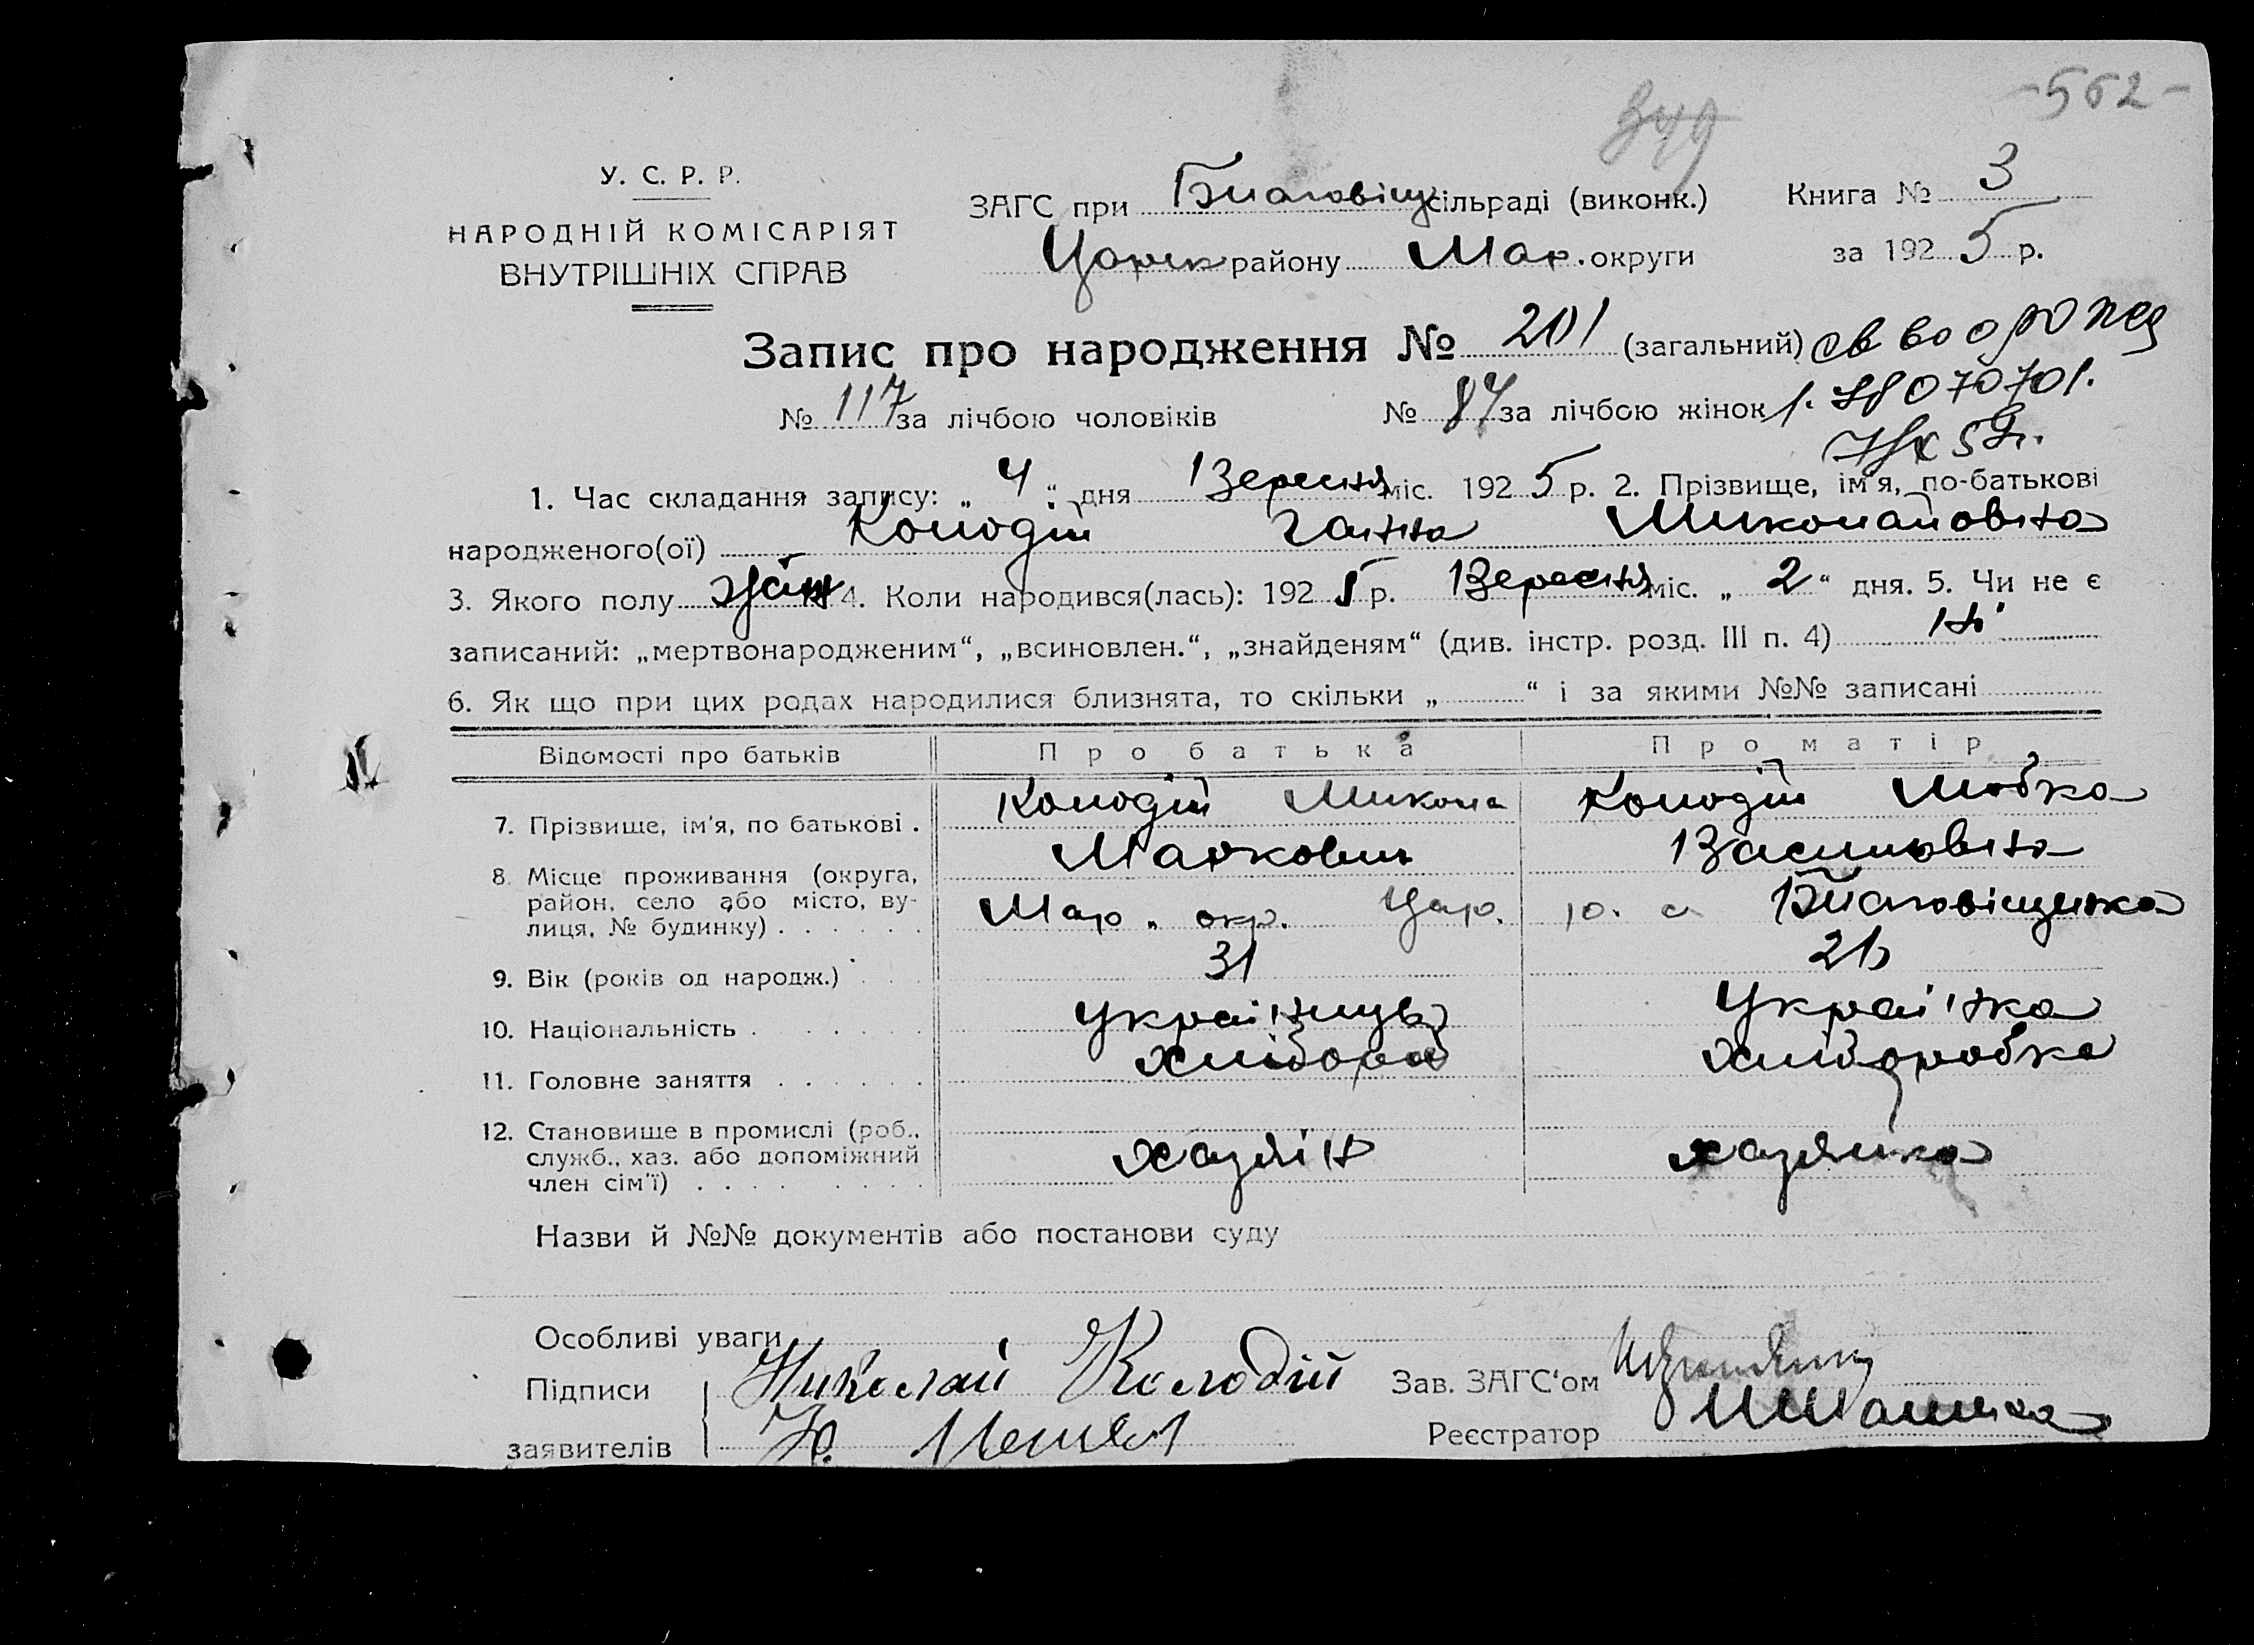 -562-
349
У. С. Р. Р.
НАРОДНІЙ КОМІСАРІЯТ
ВНУТРІШНІХ СПРАВ
ЗАГС при Благовіщ сільраді (виконк.) Книга № 3
Царек району Мар. округи за 1925 р.
Запис про народження № 201 (загальний)
№ 117 за лічбою чоловіків № 84 за лічбою жінок
1. Час складання запису: „ 4 “ дня Вересня міс. 1925 р. 2. Прізвище, ім'я, по-батькові
народженого(ої) Колодій Ганна Миколаївна
3. Якого полу жін 4. Коли народився(лась): 1925 р. Вересня міс. „ 2 “ дня. 5. Чи не є
записаний: „мертвонародженим“, „всиновлен.“, „знайденям“ (див. інстр. розд. III п. 4) ні
6. Як що при цих родах народилися близнята, то скільки „ “ і за якими №№ записані
Відомості про батьків Про батька Про матір
7. Прізвище, ім'я, по батькові . Колодій Микола Колодій Любка
Маркович Василівна
8. Місце проживання (округа,
район, село або місто, ву-
лиця, № будинку) Мар. окр. Цар. р. с. Благовіщенка
9. Вік (років од народж.) 31
10. Національність Українець Українка
11. Головне заняття хлібороб хліборобка
12. Становище в промислі (роб.,
служб., хаз. або допоміжний
член сім'ї) хазяїн хазяйка
Назви й №№ документів або постанови суду
Особливі уваги
Підписи Николай Колодій Зав. ЗАГС'ом
заявителів Реєстратор